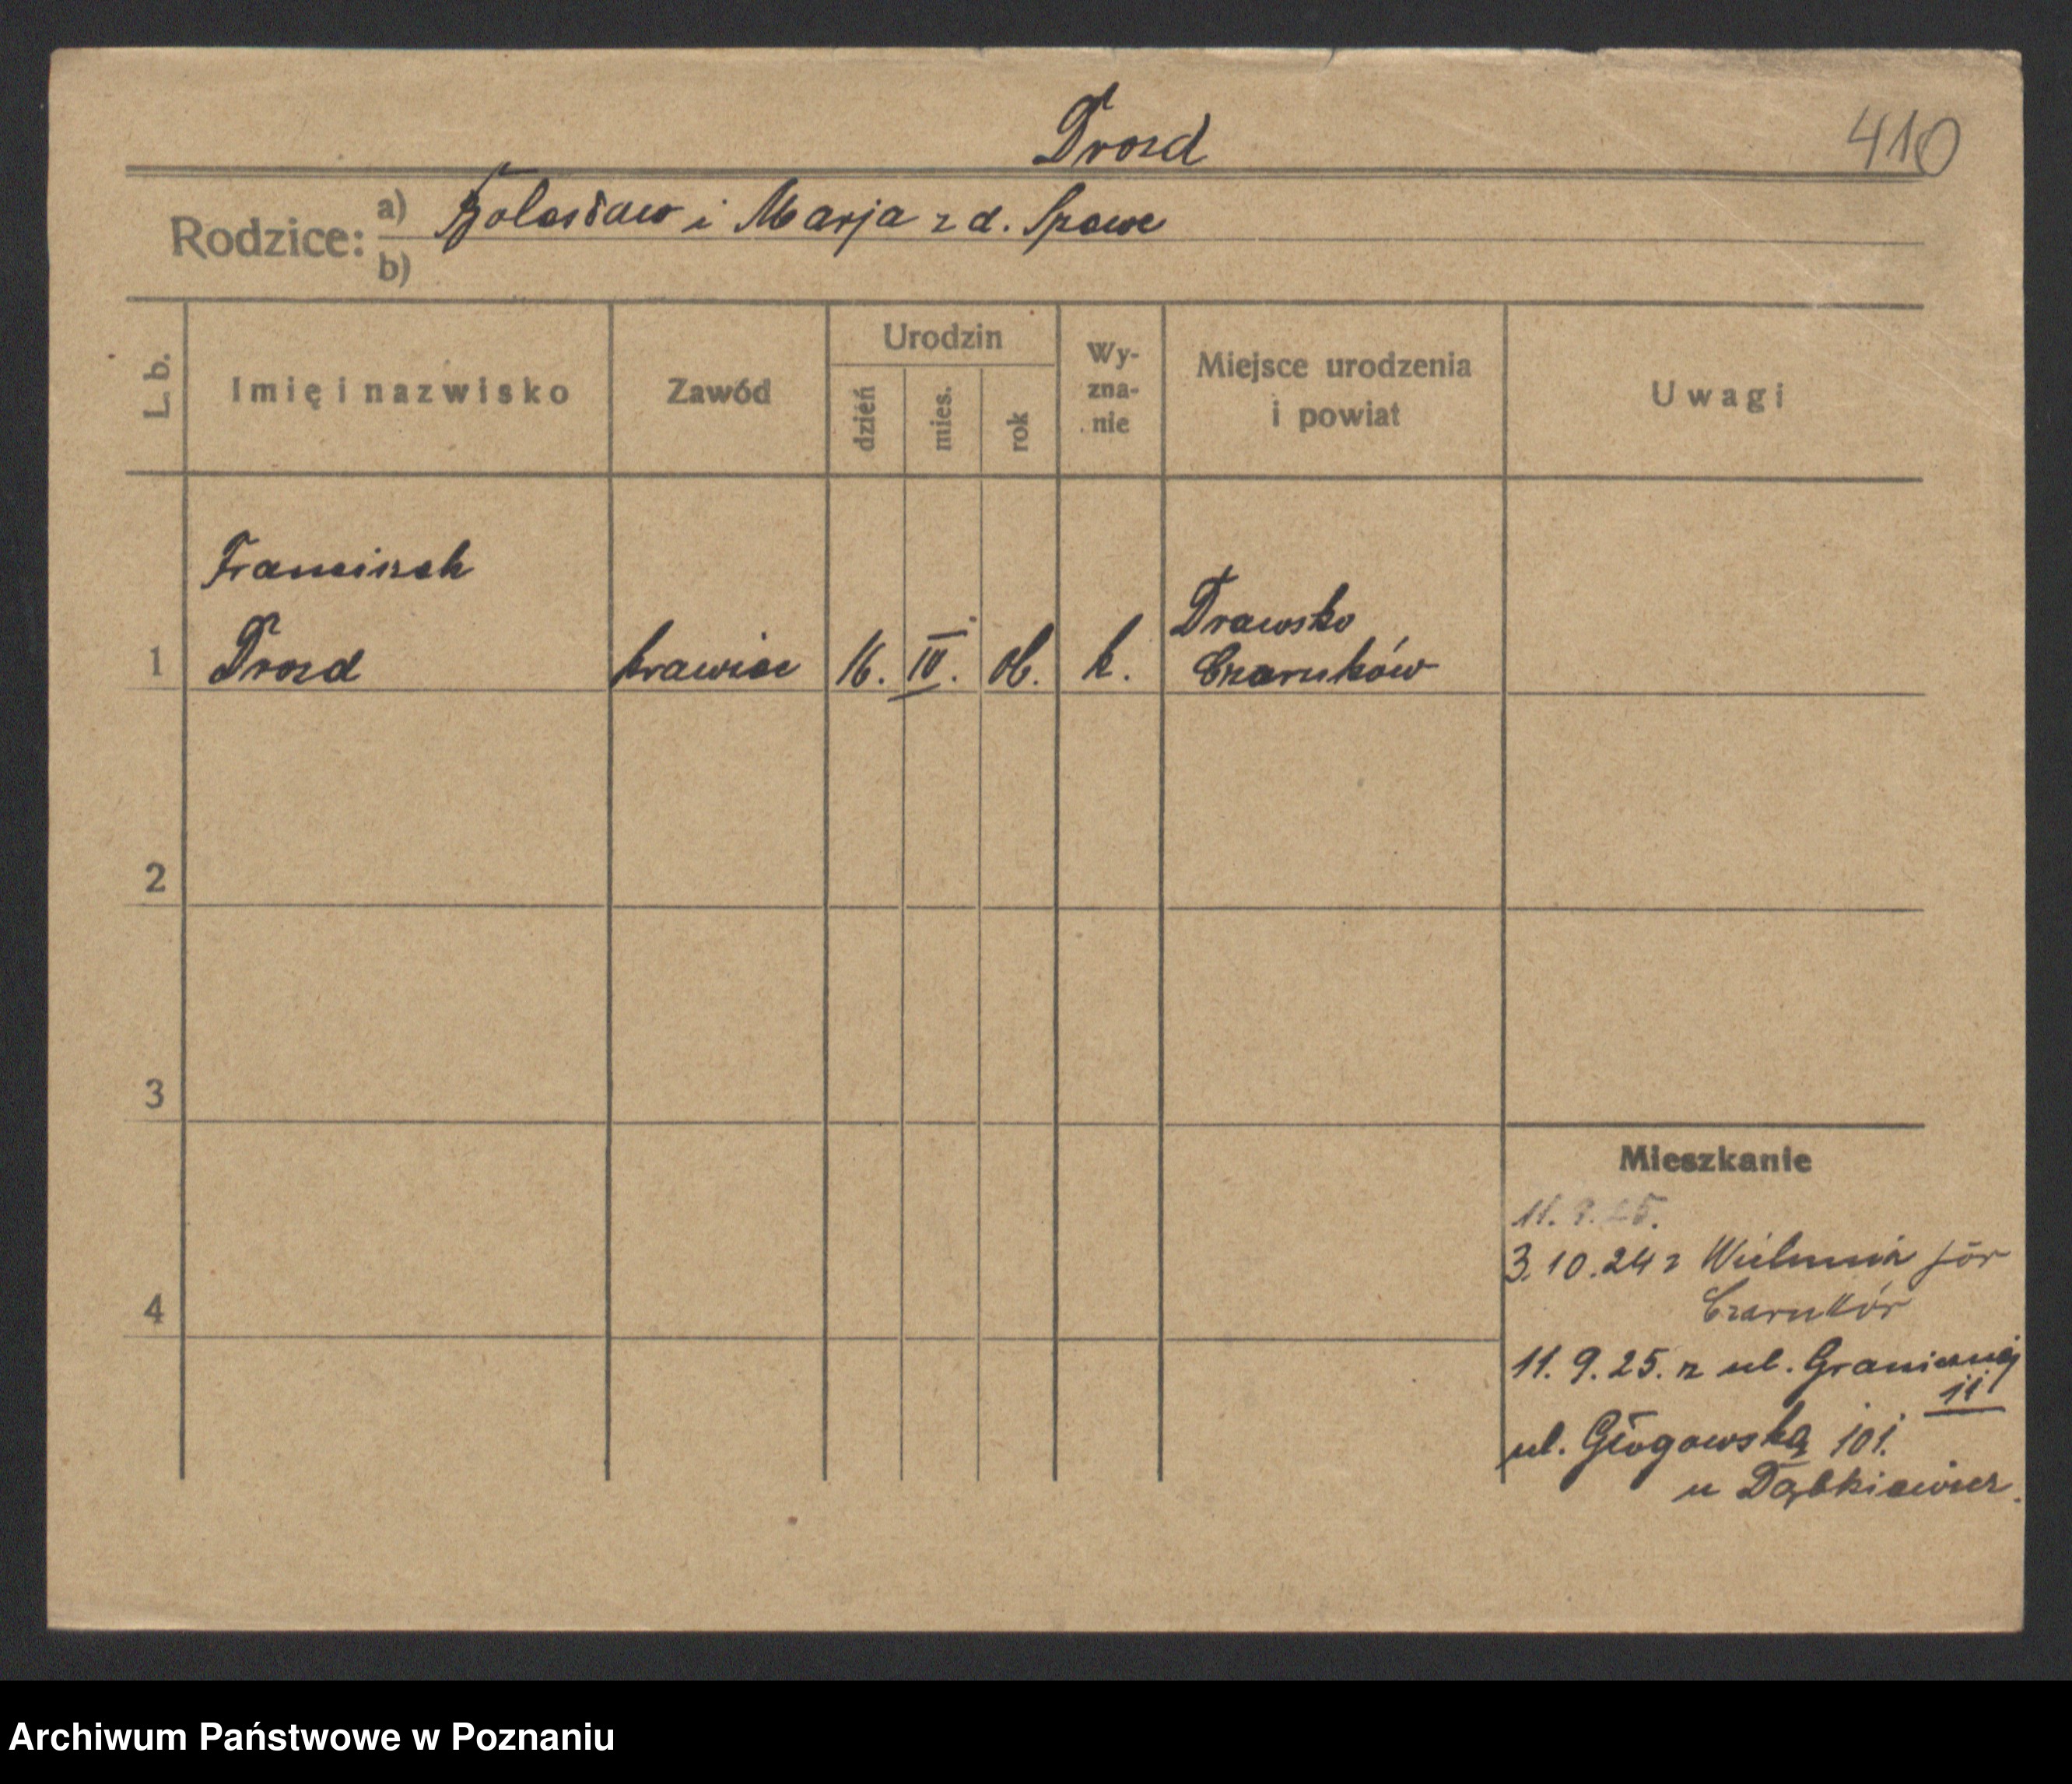 Drozd
410
Rodzice: a) Bolesław i Marja z d. Spawe
b)
L. b.
Imię i nazwisko
Zawód
Urodzin
dzień
mies.
rok
Wy-
zna-
nie
Miejsce urodzenia
i powiat
Uwagi
Franciszek
1 Drozd krawiec 16. 06. k. Drawsko
Czarnków
2
3
4
Mieszkanie
11. 9. 25.
3.10.24 z
11. 9. 25. z ul. Granicznej
11
ul. Głogowska 101.
u Dąbkiewicz.
Archiwum Państwowe w Poznaniu